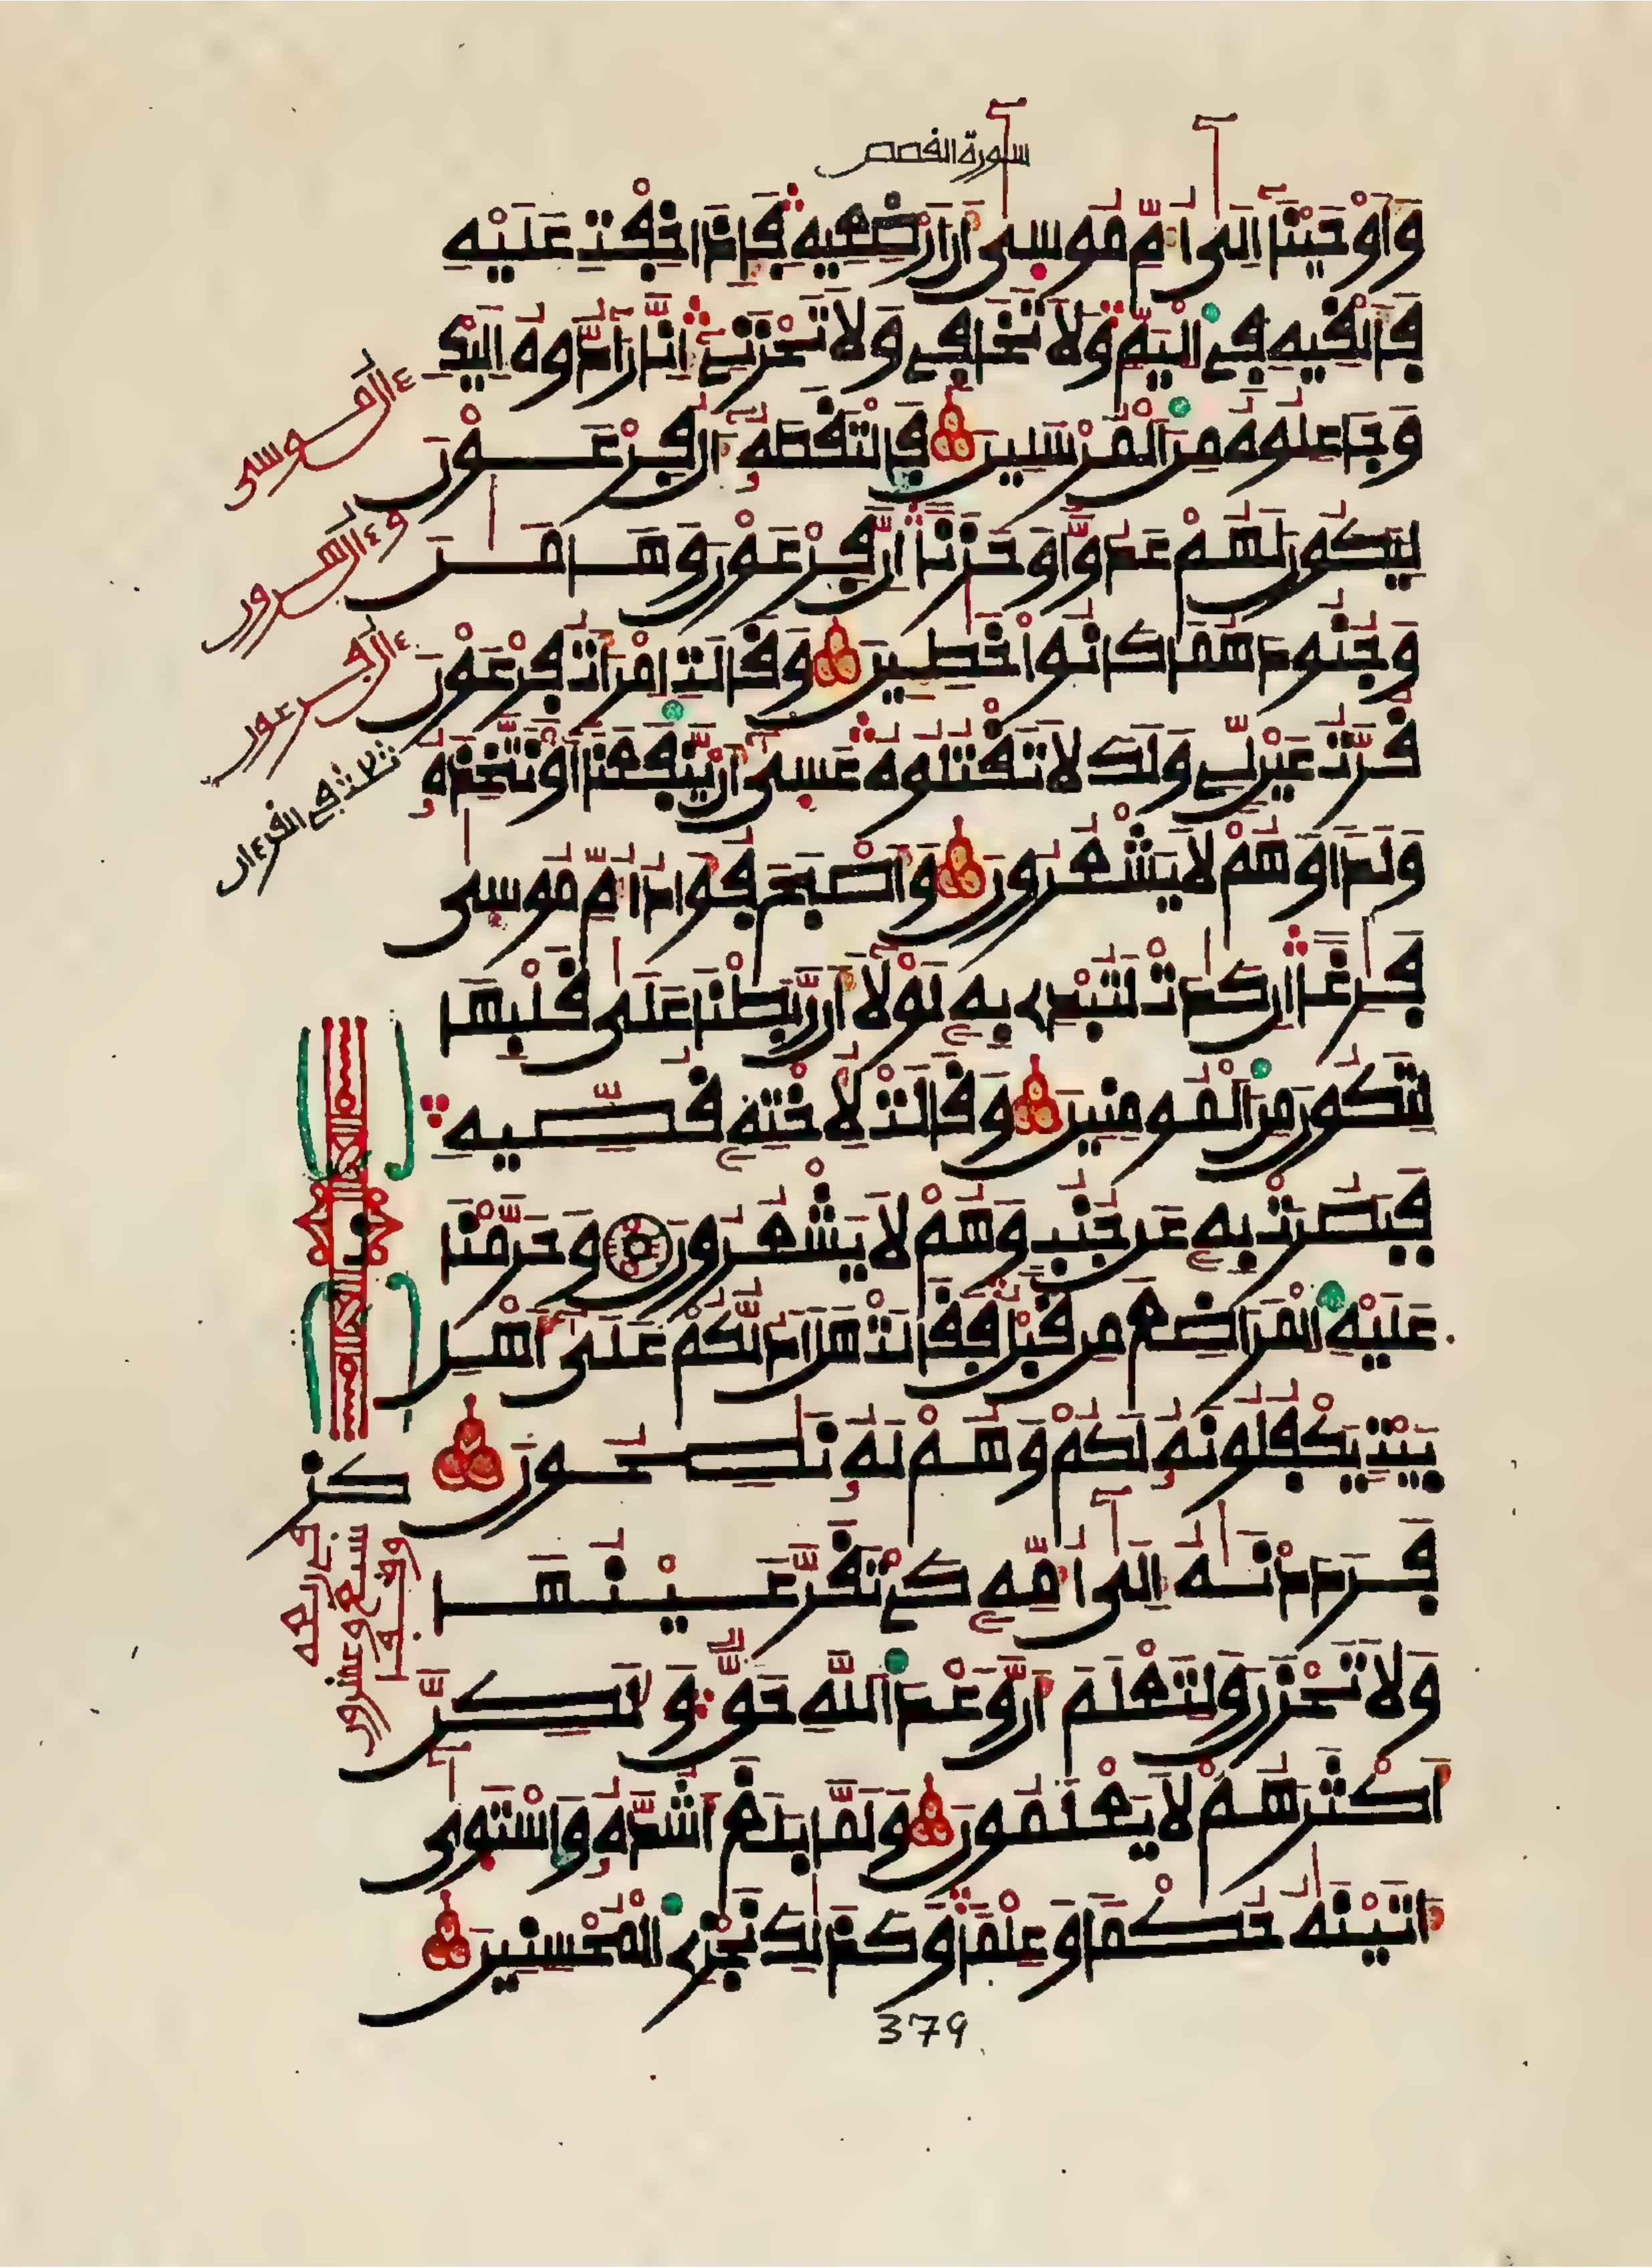 سورة القصص
وَأَوْحَيْنَا إِلَىٰ أُمِّ مُوسَىٰ أَنْ أَرْضِعِيهِ فَإِذَا خِفْتِ عَلَيْهِ
فَأَلْقِيهِ فِي الْيَمِّ وَلَا تَخَافِي وَلَا تَحْزَنِي إِنَّا رَادُّوهُ إِلَيْكِ
وَجَاعِلُوهُ مِنَ الْمُرْسَلِينَ فَالْتَقَطَهُ ءَالُ فِرْعَوْنَ
لِيَكُونَ لَهُمْ عَدُوًّا وَحَزَنًا إِنَّ فِرْعَوْنَ وَهَامَٰنَ
وَجُنُودَهُمَا كَانُوا خَٰطِـِٕينَ وَقَالَتِ امْرَأَتُ فِرْعَوْنَ
قُرَّتُ عَيْنٍ لِّي وَلَكَ لَا تَقْتُلُوهُ عَسَىٰ أَنْ يَّنفَعَنَا أَوْ نَتَّخِذَهُ
وَلَدًا وَهُمْ لَا يَشْعُرُونَ وَأَصْبَحَ فُؤَادُ أُمِّ مُوسَىٰ
فَٰرِغًا إِن كَادَتْ لَتُبْدِي بِهِ لَوْلَا أَن رَّبَطْنَا عَلَىٰ قَلْبِهَا
لِتَكُونَ مِنَ الْمُومِنِينَ وَقَالَتْ لِأُخْتِهِ قُصِّيهِ
فَبَصُرَتْ بِهِ عَن جُنُبٍ وَهُمْ لَا يَشْعُرُونَ وَحَرَّمْنَا
عَلَيْهِ الْمَرَاضِعَ مِن قَبْلُ فَقَالَتْ هَلْ أَدُلُّكُمْ عَلَىٰ أَهْلِ
بَيْتٍ يَكْفُلُونَهُ لَكُمْ وَهُمْ لَهُ نَٰصِحُونَ
فَرَدَدْنَٰهُ إِلَىٰ أُمِّهِ كَيْ تَقَرَّ عَيْنُهَا
وَلَا تَحْزَنَ وَلِتَعْلَمَ أَنَّ وَعْدَ اللَّهِ حَقٌّ وَلَٰكِنَّ
أَكْثَرَهُمْ لَا يَعْلَمُونَ وَلَمَّا بَلَغَ أَشُدَّهُ وَاسْتَوَىٰ
ءَاتَيْنَٰهُ حُكْمًا وَعِلْمًا وَكَذَٰلِكَ نَجْزِي الْمُحْسِنِينَ
ءال موسى
وءال هرون
ءال فرعون
ثلاث في القرءان
سبع وعشرون
379